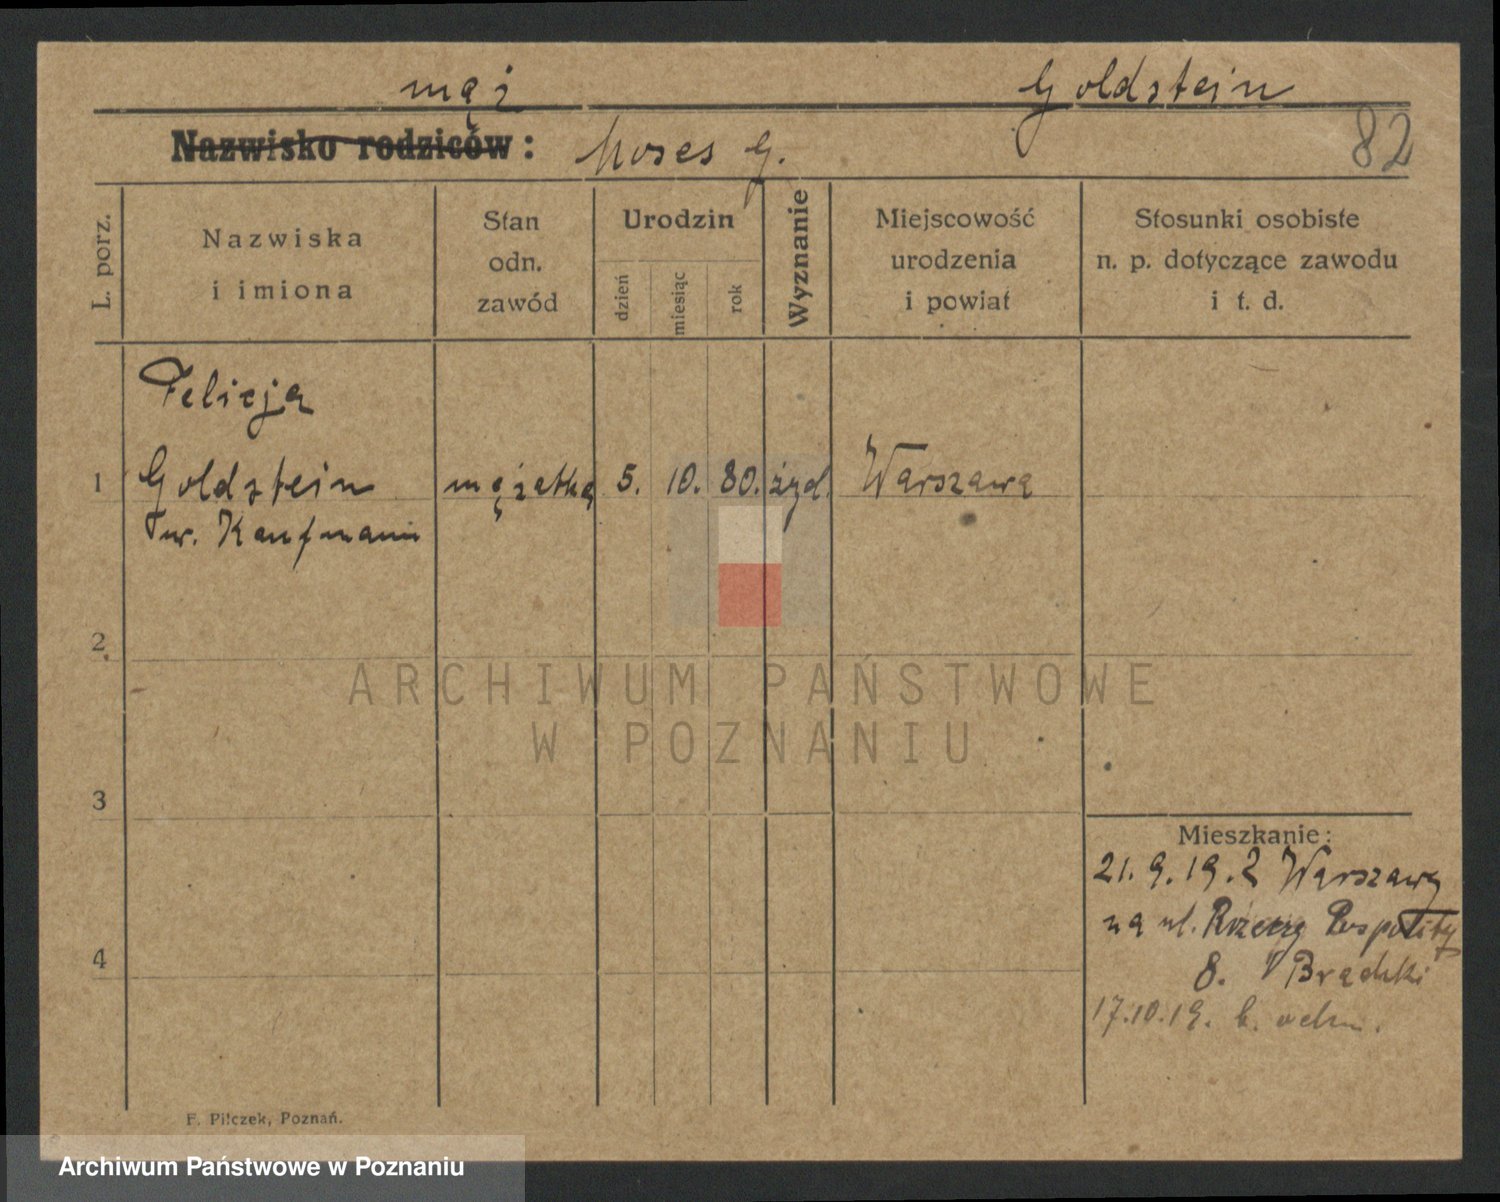 mąż Goldstein
Nazwisko rodziców: Moses G. 82
L. porz.
Nazwiska
i imiona
Stan
odn.
zawód
Urodzin
dzień
miesiąc
rok
Wyznanie
Miejscowość
urodzenia
i powiat
Stosunki osobiste
n. p. dotyczące zawodu
i t. d.
Felicja
1 Goldstein mężatka 5. 10. 80. żyd. Warszawa
ur. Kaufmann
2
3
4
ARCHIWUM PAŃSTWOWE
W POZNANIU
Mieszkanie:
21.9.19. Z Warszawy
na ul.
8.
17.10.19.
F. Pilczek, Poznań.
Archiwum Państwowe w Poznaniu